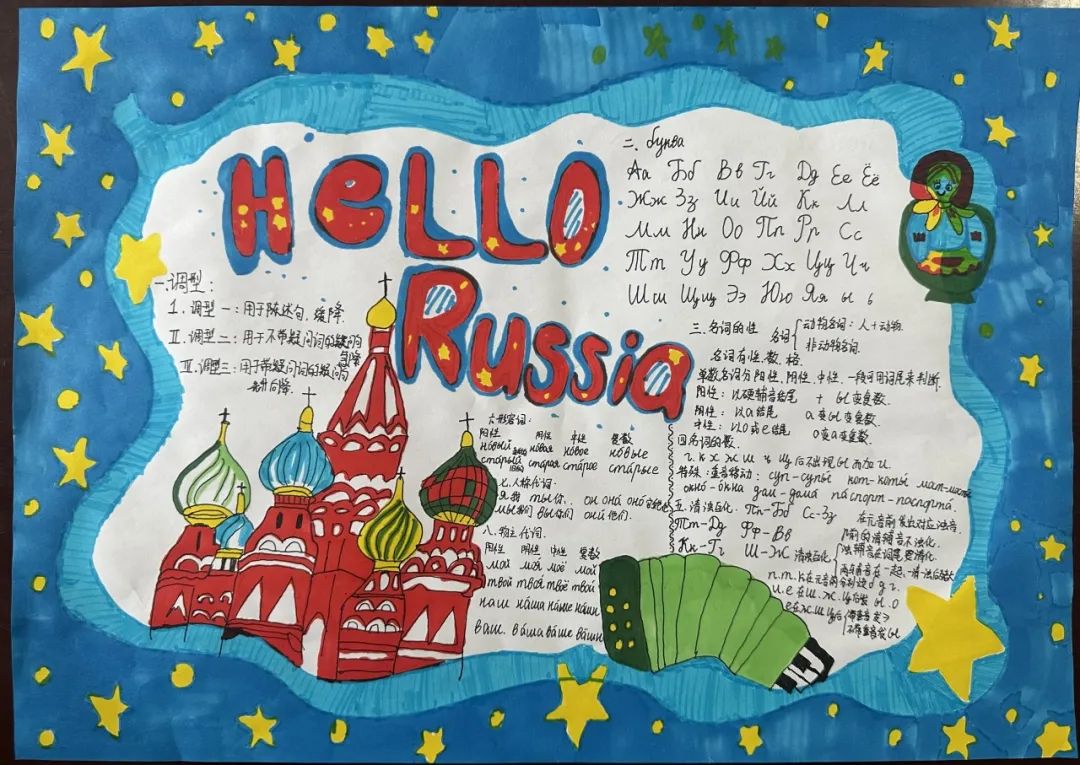 HELLO
Russia
一.调型:
Ⅰ. 调型一:用于陈述句,缓降.
Ⅱ. 调型二:用于不带疑问词的疑问句
急降
Ⅲ. 调型三:用于带疑问词的疑问句
后降.
二. буква
Аа Бб Вв Гг Дд Ее Ёё
Жж Зз Ии Йй Кк Лл
Мм Нн Оо Пп Рр Сс
Тт Уу Фф Хх Цц Чч
Шш Щщ Ээ Юю Яя ы ь
三. 名词的性
名词
动物名词:人+动物.
非动物名词.
名词有性.数.格.
单数名词分阳性.阴性.中性.一般可用词尾来判断.
阳性:以硬辅音结尾 + ы变复数.
阴性:以а结尾 а变ы变复数.
中性:以о或е结尾 о变а变复数.
四名词的数.
г. к х ж ш ч щ后不出现ы而加и.
特殊:重音移动: суп-супы́ кот-коты́
окно́-о́кна дом-дома́ па́спорт-паспорта́.
五. 清浊音化. Пп-Бб Сс-Зз
Тт-Дд Фф-Вв
Кк-Гг Ш-Ж
清浊音化
浊辅音在词尾要清化.
六形容词:
阳性 阴性 中性 复数
но́вый но́вая но́вое но́вые
ста́рый ста́рая ста́рое ста́рые
七. 人称代词.
я我 ты你. он она́ оно́
мы我们 вы你们 они́他们.
八. 物主代词.
阳性 阴性 中性 复数
мой моя́ моё мои́
твой твоя́ твоё твои́
наш на́ша на́ше на́ши
ваш. ва́ша ва́ше ва́ши